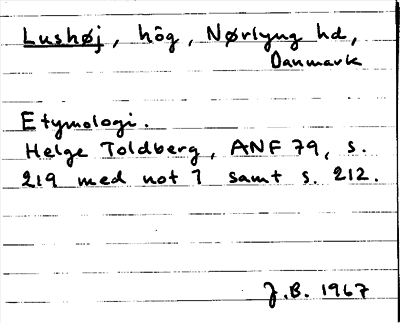 Lushøj, hög, Nørlyng hd,
Danmark
Etymologi.
Helge Toldberg, ANF 79, s.
219 med not 7 samt s. 212.
J.B. 1967